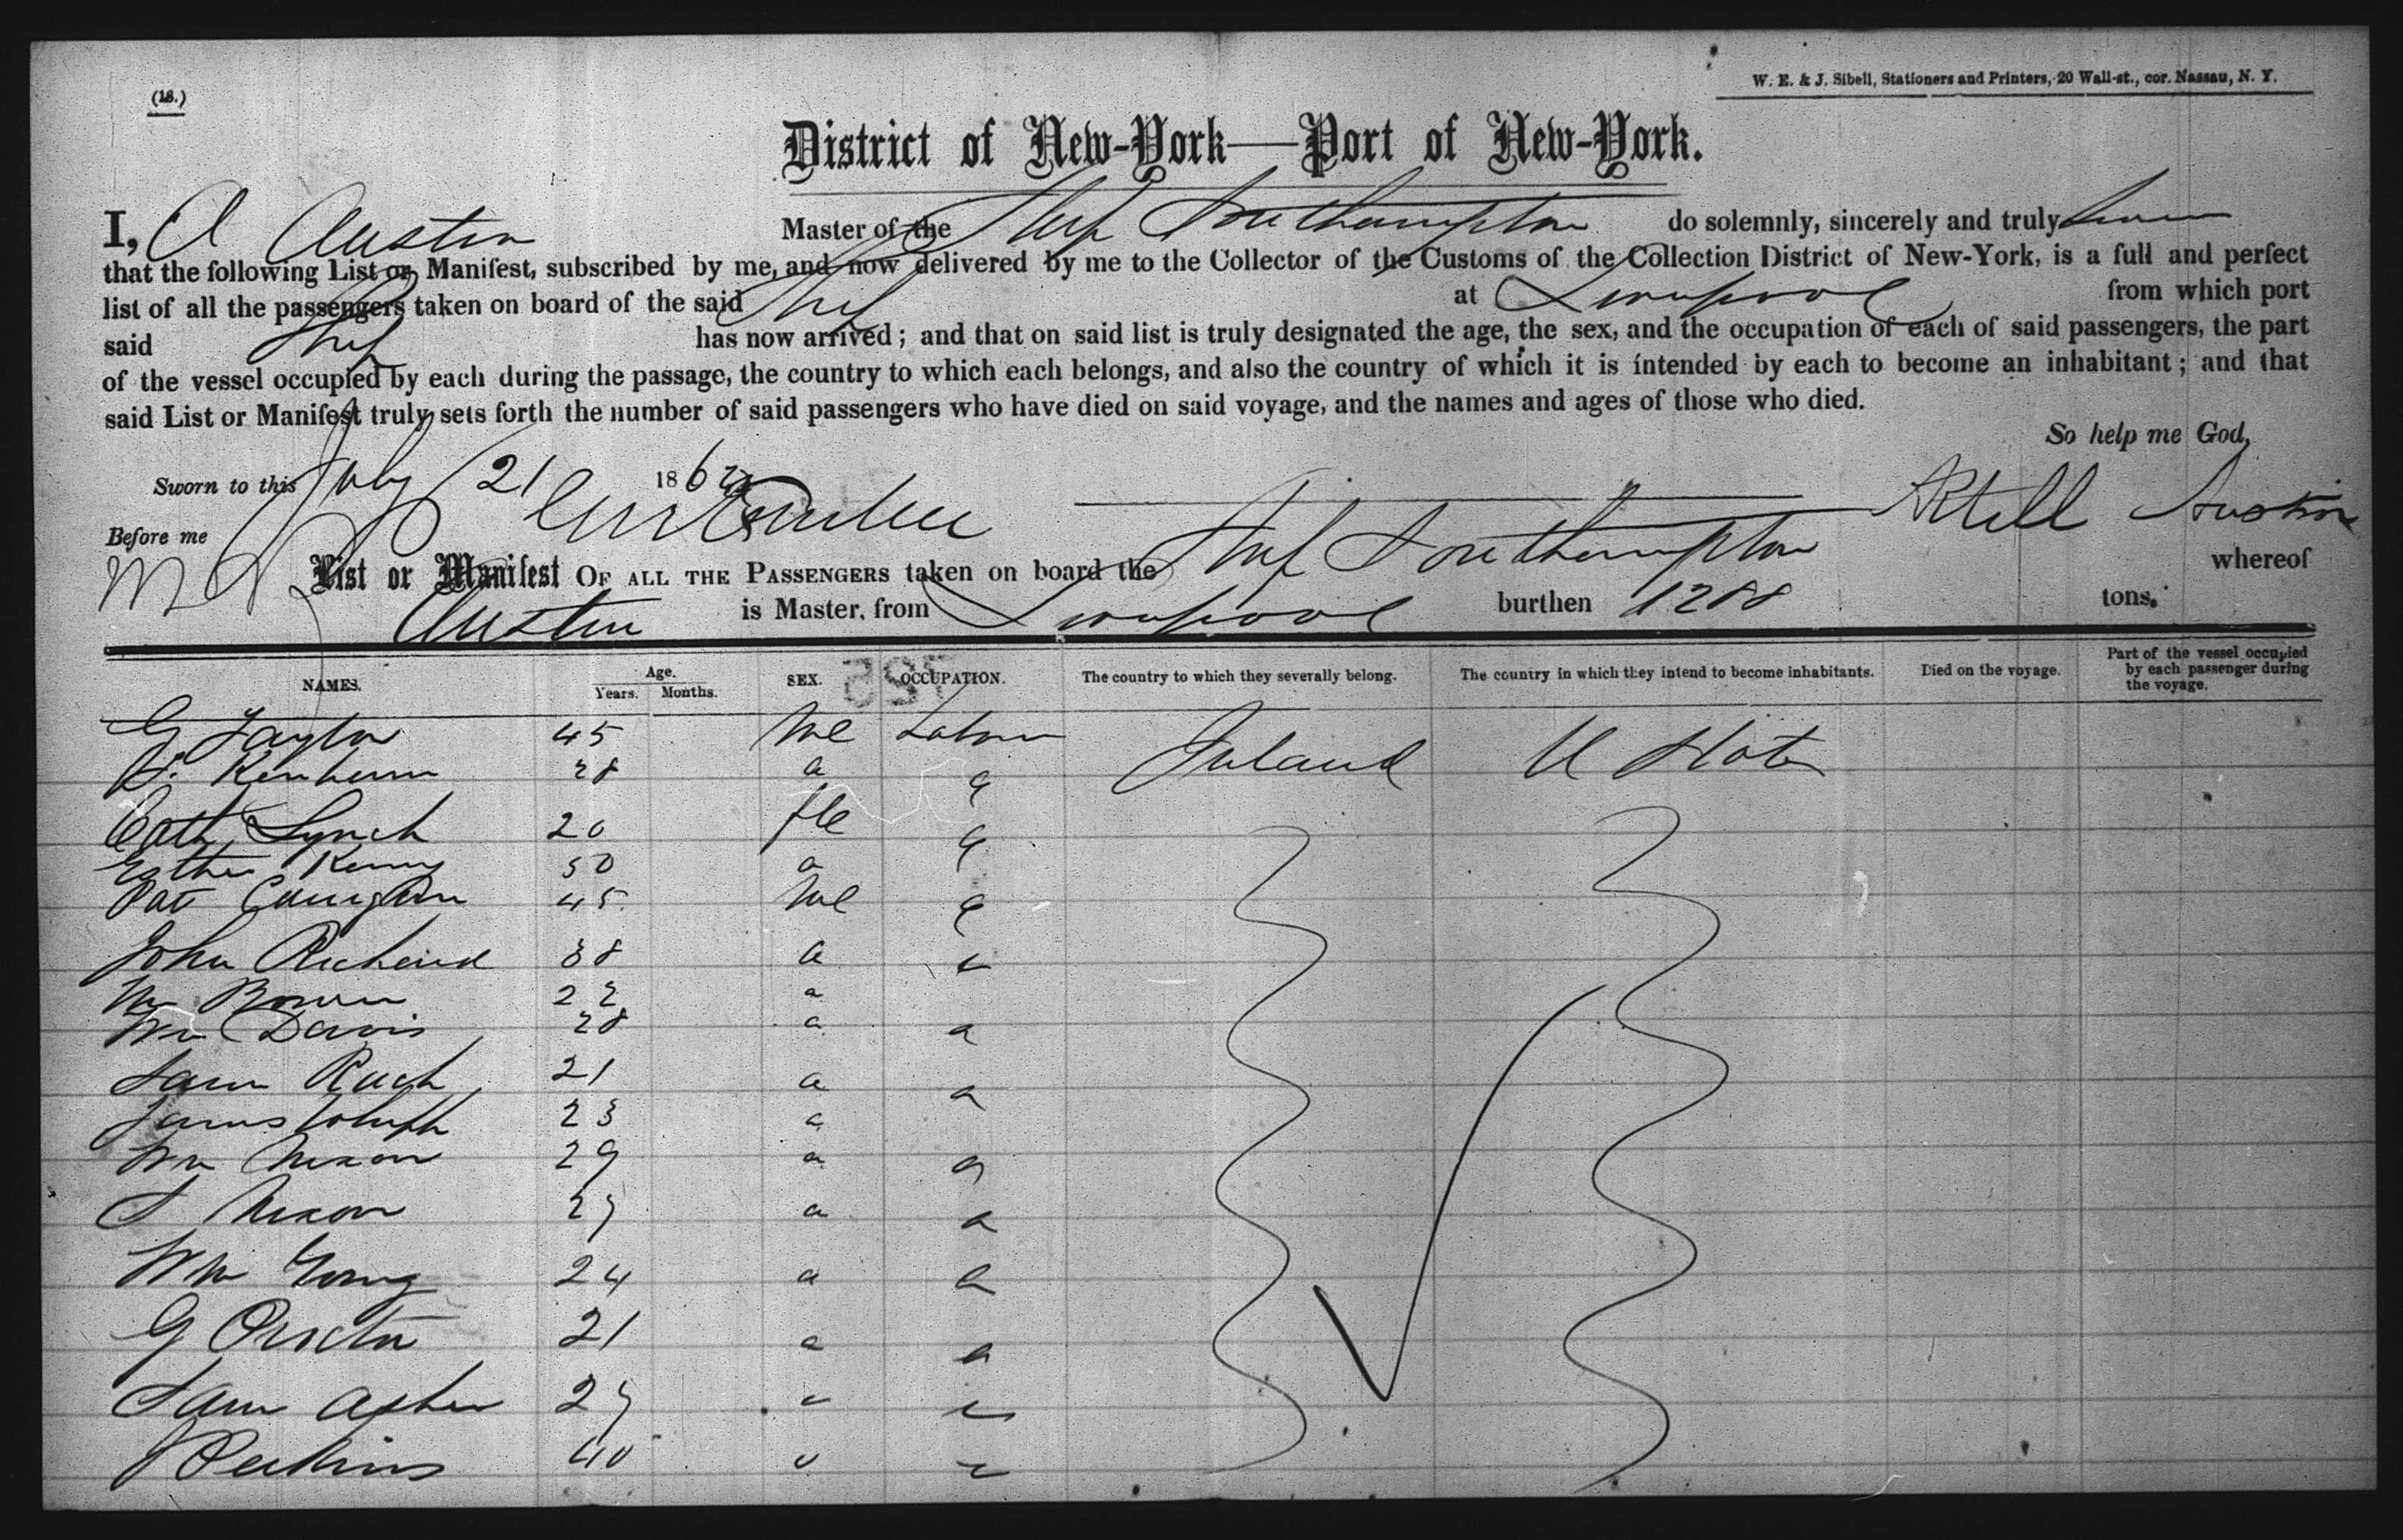 (18.)
W. E. & J. Sibell, Stationers and Printers, 20 Wall-st., cor. Nassau, N. Y.
District of New-York—Port of New-York.
I, A Austin Master of the Ship Southampton do solemnly, sincerely and truly swear
that the following List or Manifest, subscribed by me, and now delivered by me to the Collector of the Customs of the Collection District of New-York, is a full and perfect
list of all the passengers taken on board of the said Ship at Liverpool from which port
said Ship has now arrived; and that on said list is truly designated the age, the sex, and the occupation of each of said passengers, the part
of the vessel occupied by each during the passage, the country to which each belongs, and also the country of which it is intended by each to become an inhabitant; and that
said List or Manifest truly sets forth the number of said passengers who have died on said voyage, and the names and ages of those who died.
So help me God,
Sworn to this July 21 186
Before me Austin
List or Manifest OF ALL THE PASSENGERS taken on board the Ship Southampton whereof
Austin is Master, from Liverpool burthen 1288 tons.
NAMES. Age. Years. Months. SEX. OCCUPATION. The country to which they severally belong. The country in which they intend to become inhabitants. Died on the voyage. Part of the vessel occupied by each passenger during the voyage.
G Taylor 45 Me Labour Ireland U States
28 a a
Cath Lynch 20 fle a
Esther Kenny 50 a
Pat 45 Me a
John Richard 38 a
Wm Brown 22 a
Wm Davis 28 a a
Sam 21 a a
James 23 a
Wm Nixon 29 a a
S Nixon 25 a a
Wm Young 24 a a
G Procter 21 a a
Sam 25
J Perkins 40